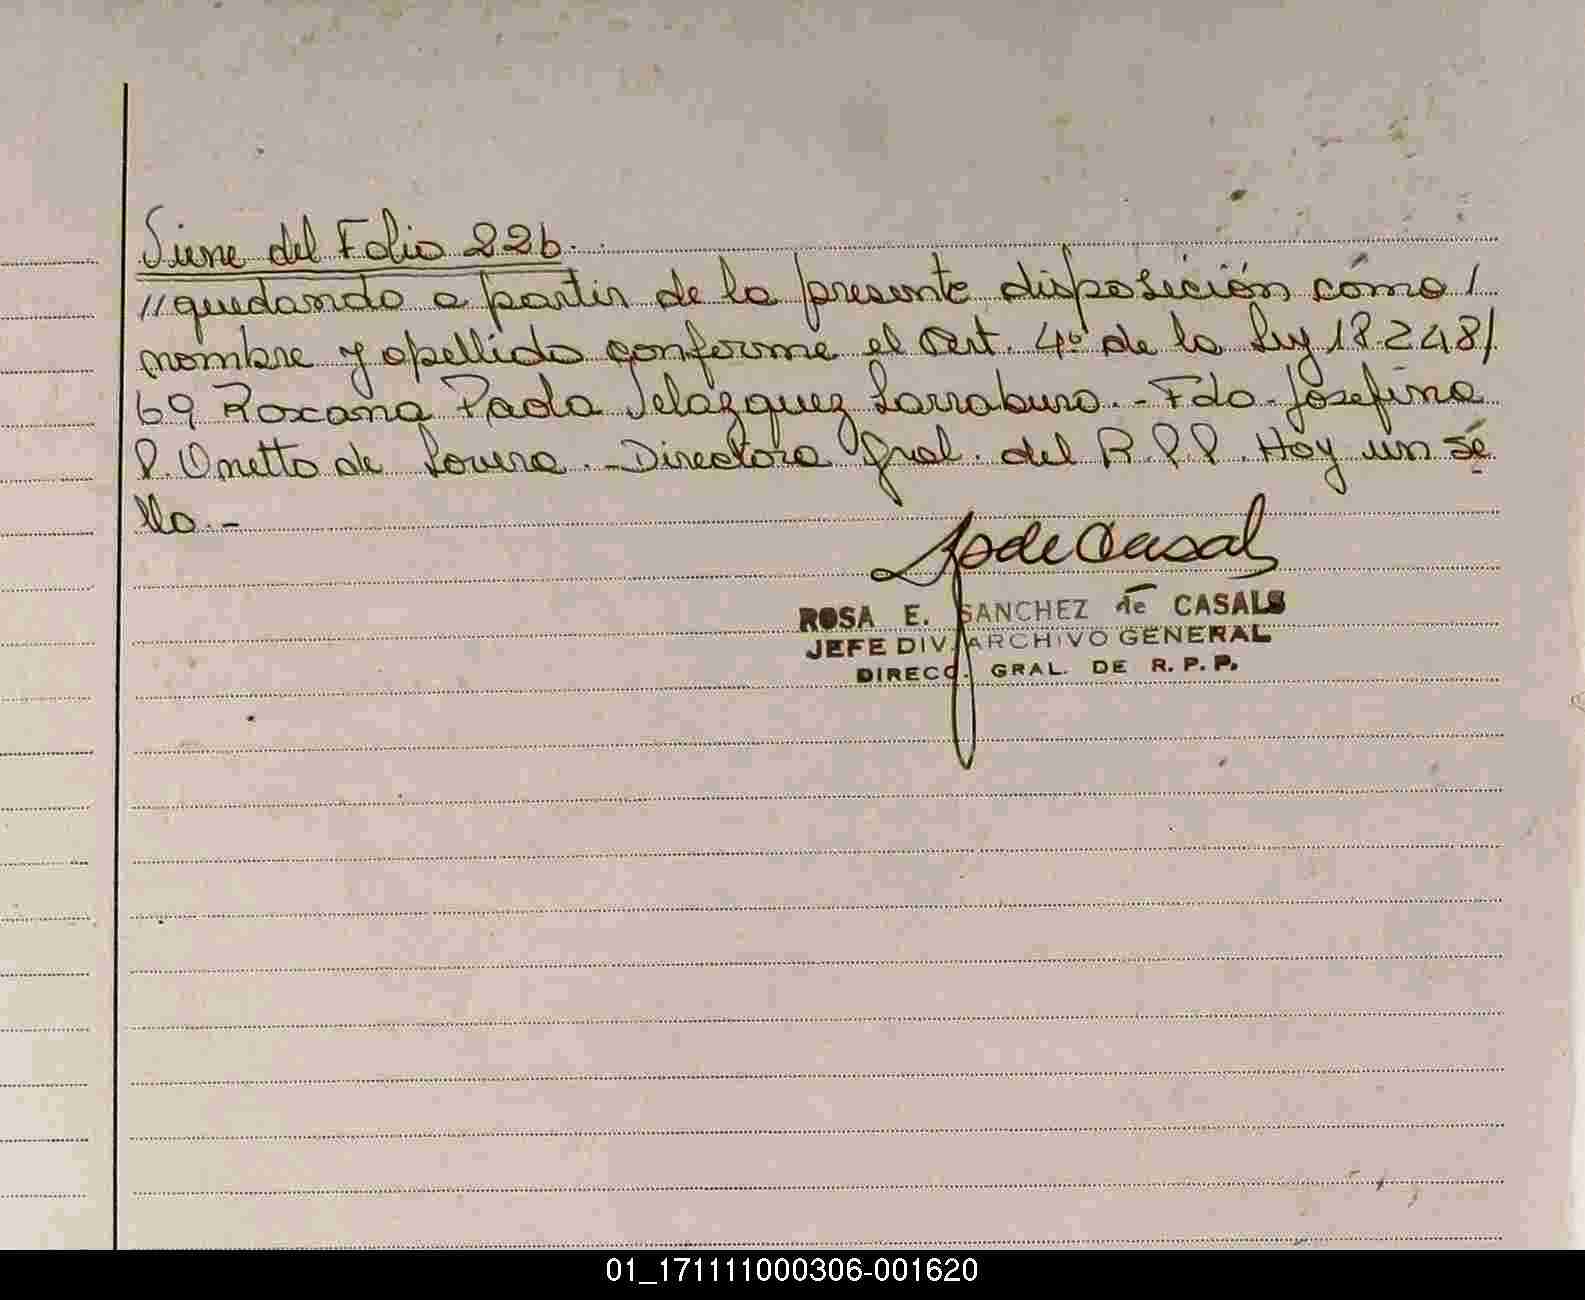 Viene del Folio 226.
//quedando a partir de la presente disposición cómo /
nombre y apellido conforme el Art. 4º de la Ley 18.248/
69 Roxana Paola Velázquez Larraburo.- Fdo. Josefina
P. Onetto de Lovera.- Directora Gral. del R.P.P. Hay un se
llo.-
ROSA E. SANCHEZ de CASALS
JEFE DIV. ARCHIVO GENERAL
DIRECC. GRAL. DE R. P. P.
01_171111000306-001620